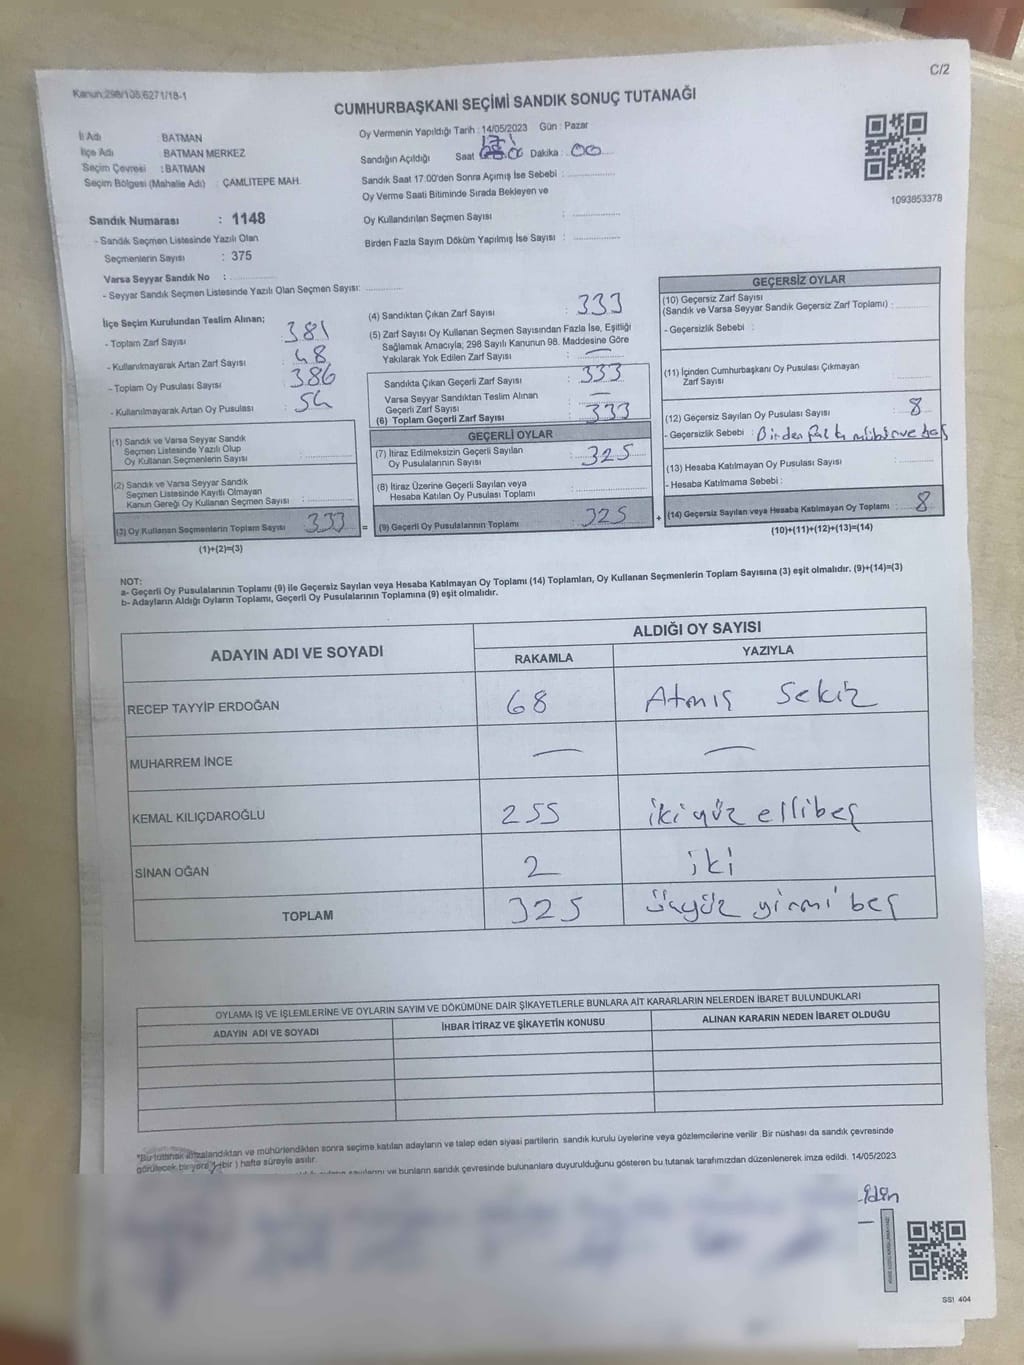 C/2
Kanun:298/105,6271/18-1
CUMHURBAŞKANI SEÇİMİ SANDIK SONUÇ TUTANAĞI
İl Adı BATMAN
İlçe Adı : BATMAN MERKEZ
Seçim Çevresi : BATMAN
Seçim Bölgesi (Mahalle Adı) : ÇAMLITEPE MAH.
Oy Vermenin Yapıldığı Tarih : 14/05/2023 Gün : Pazar
Sandığın Açıldığı Saat Dakika : 00
Sandık Saat 17.00'den Sonra Açımış İse Sebebi :
Oy Verme Saati Bitiminde Sırada Bekleyen ve
Oy Kullandırılan Seçmen Sayısı :
Birden Fazla Sayım Döküm Yapılmış İse Sayısı :
1093853378
Sandık Numarası : 1148
- Sandık Seçmen Listesinde Yazılı Olan
Seçmenlerin Sayısı : 375
Varsa Seyyar Sandık No :
- Seyyar Sandık Seçmen Listesinde Yazılı Olan Seçmen Sayısı:
İlçe Seçim Kurulundan Teslim Alınan;
- Toplam Zarf Sayısı 381
- Kullanılmayarak Artan Zarf Sayısı : 48
- Toplam Oy Pusulası Sayısı 386
- Kullanılmayarak Artan Oy Pusulası : 54
(1) Sandık ve Varsa Seyyar Sandık
Seçmen Listesinde Yazılı Olup
Oy Kullanan Seçmenlerin Sayısı :
(2) Sandık ve Varsa Seyyar Sandık
Seçmen Listesinde Kayıtlı Olmayan
Kanun Gereği Oy Kullanan Seçmen Sayısı :
(3) Oy Kullanan Seçmenlerin Toplam Sayısı 333 =
(1)+(2)=(3)
(4) Sandıktan Çıkan Zarf Sayısı : 333
(5) Zarf Sayısı Oy Kullanan Seçmen Sayısından Fazla İse, Eşitliği
Sağlamak Amacıyla; 298 Sayılı Kanunun 98. Maddesine Göre
Yakılarak Yok Edilen Zarf Sayısı : —
Sandıkta Çıkan Geçerli Zarf Sayısı : 333
Varsa Seyyar Sandıktan Teslim Alınan
Geçerli Zarf Sayısı : —
(6) Toplam Geçerli Zarf Sayısı : 333
GEÇERLİ OYLAR
(7) İtiraz Edilmeksizin Geçerli Sayılan
Oy Pusulalarının Sayısı : 325
(8) İtiraz Üzerine Geçerli Sayılan veya
Hesaba Katılan Oy Pusulası Toplamı :
(9) Geçerli Oy Pusulalarının Toplamı : 325 +
GEÇERSİZ OYLAR
(10) Geçersiz Zarf Sayısı
(Sandık ve Varsa Seyyar Sandık Geçersiz Zarf Toplamı) :
- Geçersizlik Sebebi :
(11) İçinden Cumhurbaşkanı Oy Pusulası Çıkmayan
Zarf Sayısı
(12) Geçersiz Sayılan Oy Pusulası Sayısı : 8
- Geçersizlik Sebebi : Birden fazla mühür
(13) Hesaba Katılmayan Oy Pusulası Sayısı :
- Hesaba Katılmama Sebebi :
(14) Geçersiz Sayılan veya Hesaba Katılmayan Oy Toplamı : 8
(10)+(11)+(12)+(13)=(14)
NOT:
a- Geçerli Oy Pusulalarının Toplamı (9) ile Geçersiz Sayılan veya Hesaba Katılmayan Oy Toplamı (14) Toplamları, Oy Kullanan Seçmenlerin Toplam Sayısına (3) eşit olmalıdır. (9)+(14)=(3)
b- Adayların Aldığı Oyların Toplamı, Geçerli Oy Pusulalarının Toplamına (9) eşit olmalıdır.
ADAYIN ADI VE SOYADI ALDIĞI OY SAYISI
RAKAMLA YAZIYLA
RECEP TAYYİP ERDOĞAN 68 Atmış Sekiz
MUHARREM İNCE — —
KEMAL KILIÇDAROĞLU 255 ikiyüz ellibeş
SİNAN OĞAN 2 iki
TOPLAM 325 üçyüz yirmi beş
OYLAMA İŞ VE İŞLEMLERİNE VE OYLARIN SAYIM VE DÖKÜMÜNE DAİR ŞİKAYETLERLE BUNLARA AİT KARARLARIN NELERDEN İBARET BULUNDUKLARI
ADAYIN ADI VE SOYADI İHBAR İTİRAZ VE ŞİKAYETİN KONUSU ALINAN KARARIN NEDEN İBARET OLDUĞU
*Bu tutanak imzalandıktan ve mühürlendikten sonra seçime katılan adayların ve talep eden siyasi partilerin sandık kurulu üyelerine veya gözlemcilerine verilir. Bir nüshası da sandık çevresinde
görülecek bir yere 1 (bir) hafta süreyle asılır.
sayılarını ve bunların sandık çevresinde bulunanlara duyurulduğunu gösteren bu tutanak tarafımızdan düzenlenerek imza edildi. 14/05/2023
SSI 404